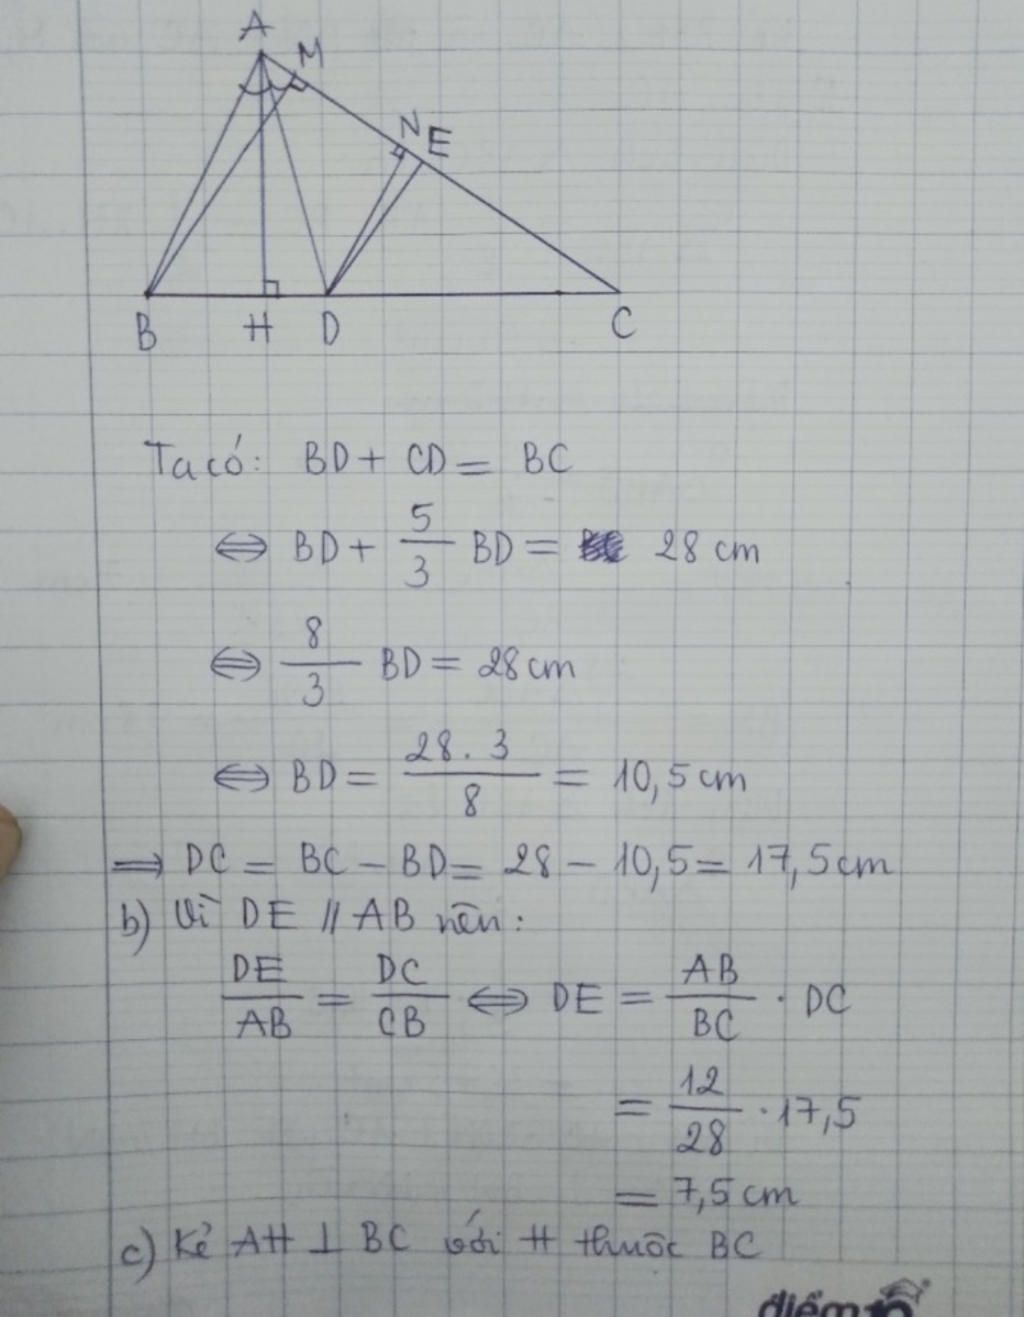 A
M
N E
B H D C
Ta có: BD + CD = BC
⇔ BD + 5/3 BD = 28 cm
⇔ 8/3 BD = 28 cm
⇔ BD = 28 . 3 / 8 = 10,5 cm
⇒ DC = BC - BD = 28 - 10,5 = 17,5 cm
b) Vì DE // AB nên:
DE/AB = DC/CB ⇔ DE = AB/BC . DC
= 12/28 . 17,5
= 7,5 cm
c) Kẻ AH ⊥ BC với H thuộc BC
điểm 10